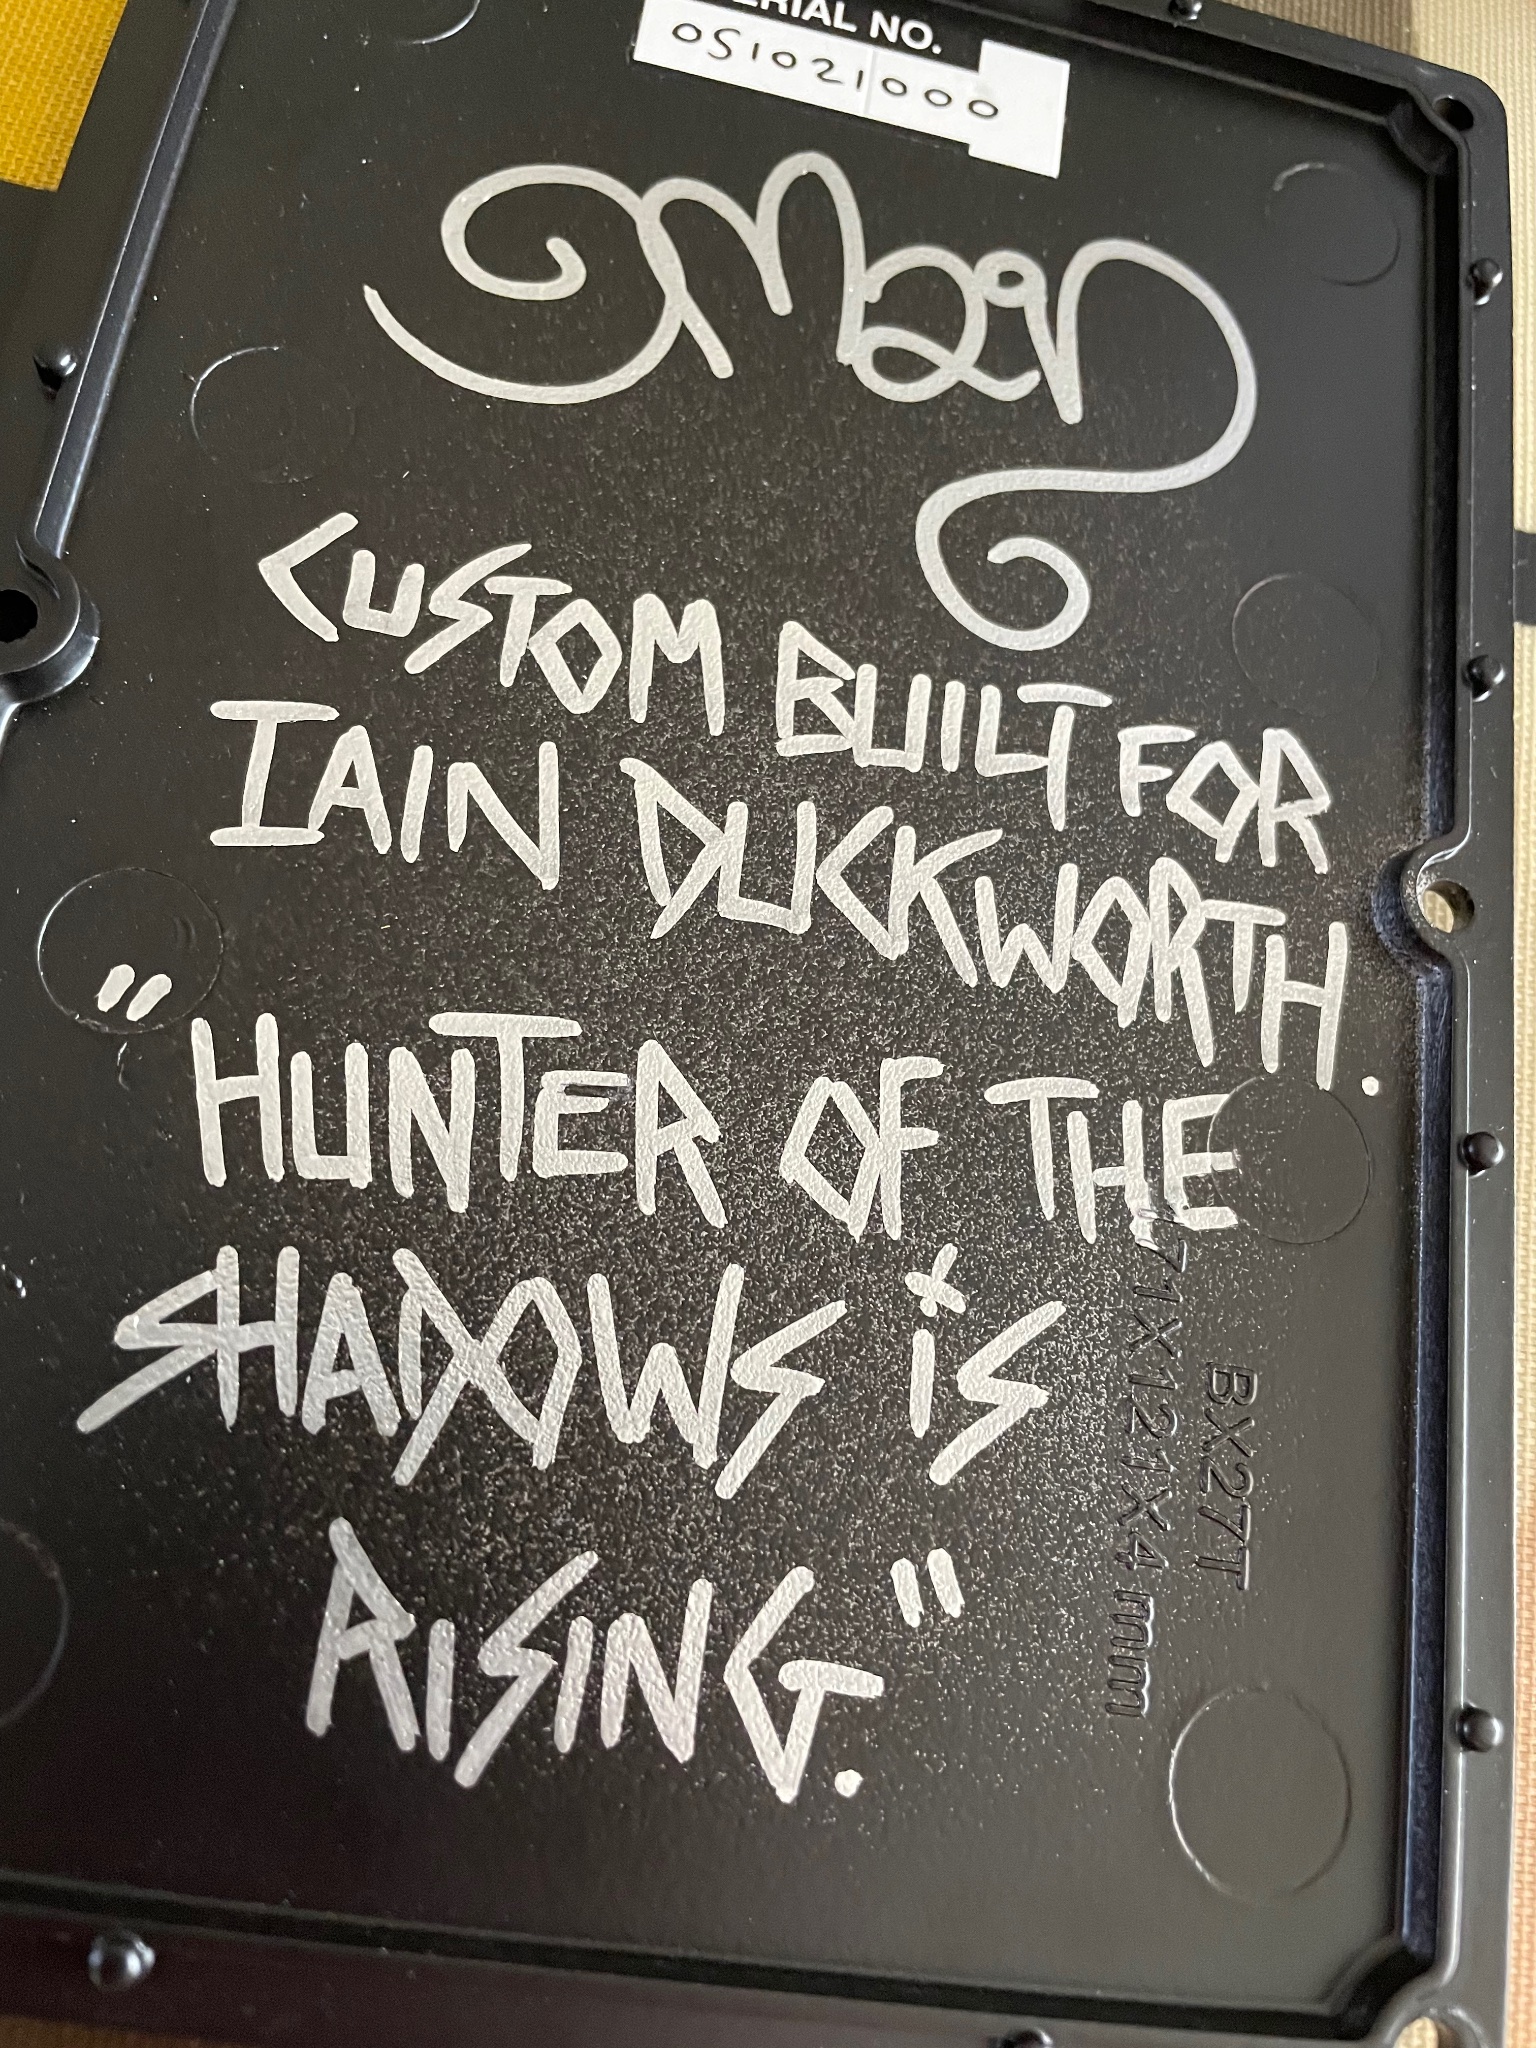 ERIAL NO.
051021000
CUSTOM BUILT FOR
IAIN DUCKWORTH.
"HUNTER OF THE
SHADOWS IS
RISING."
BX27T
171X121X4 mm